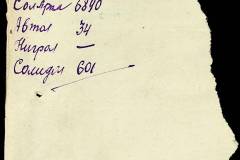 Солярка 6840
Автол 34
Нигрол —
Солидол 601